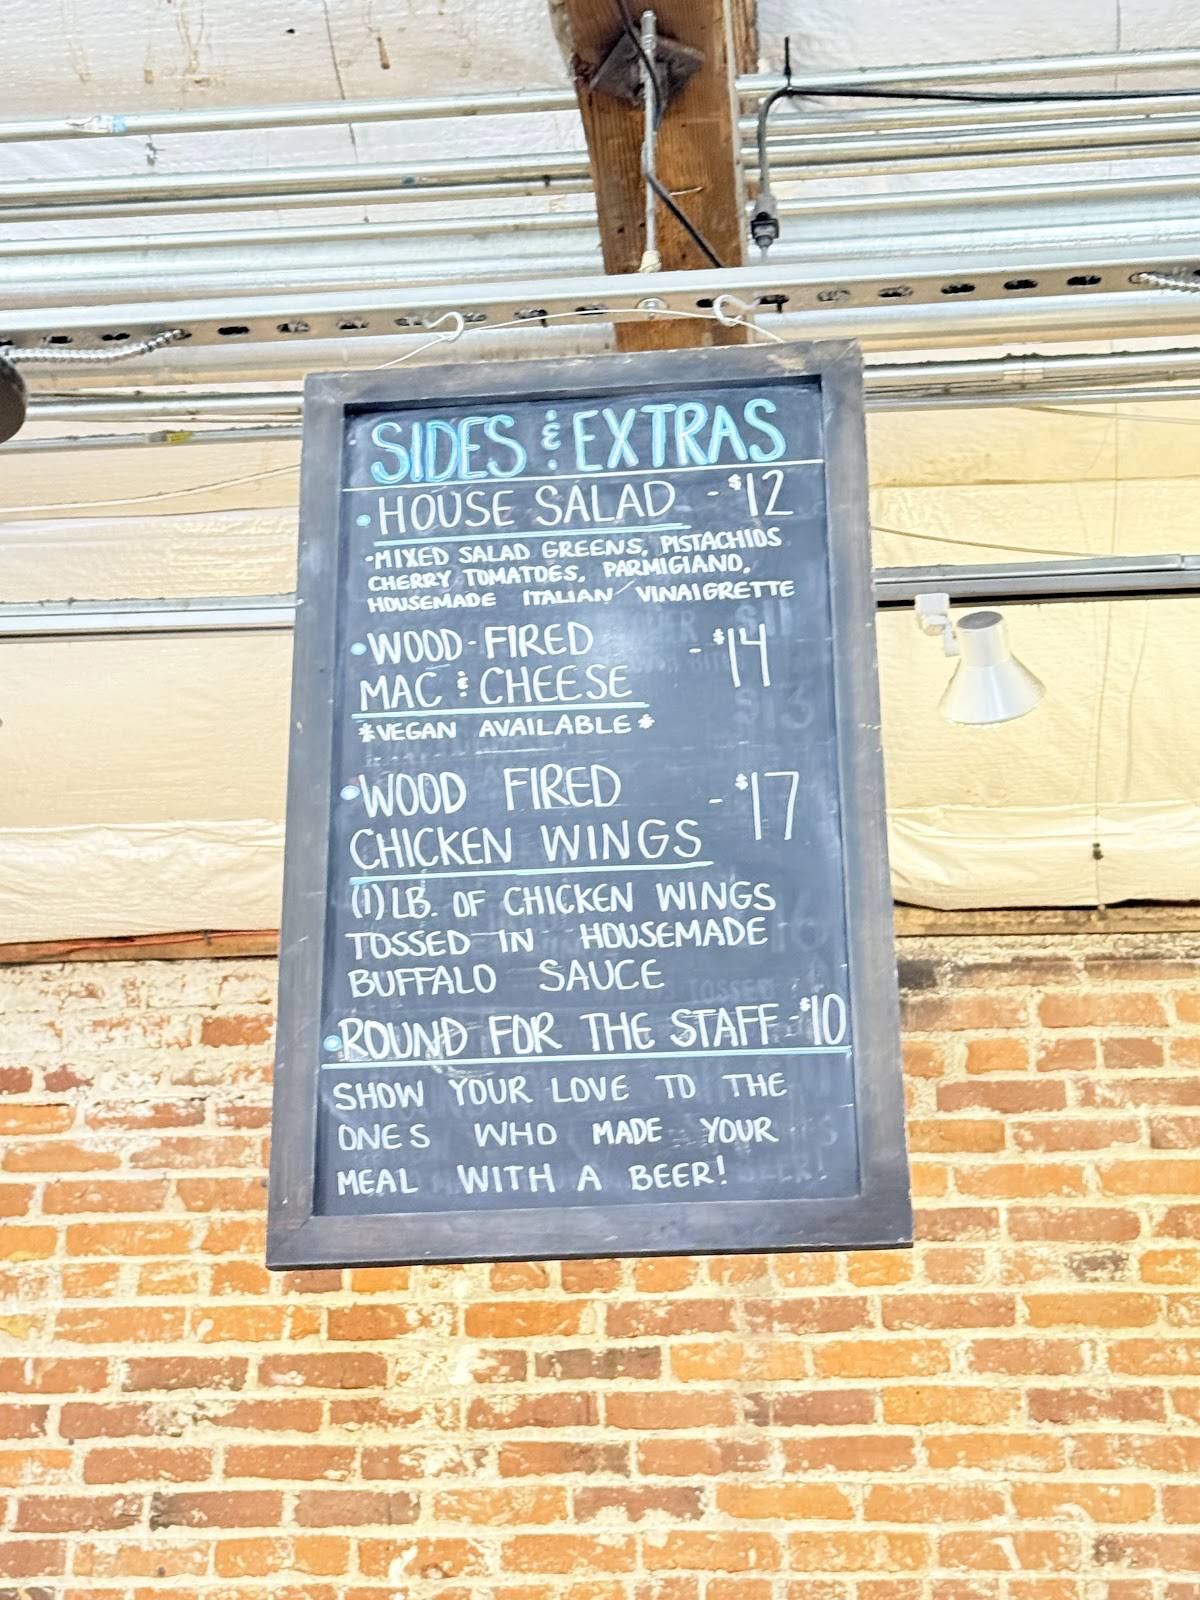 SIDES & EXTRAS
• HOUSE SALAD - $12
-MIXED SALAD GREENS, PISTACHIOS
CHERRY TOMATOES, PARMIGIANO,
HOUSEMADE ITALIAN VINAIGRETTE
• WOOD-FIRED - $14
MAC & CHEESE
*VEGAN AVAILABLE*
• WOOD FIRED - $17
CHICKEN WINGS
(1) LB. OF CHICKEN WINGS
TOSSED IN HOUSEMADE
BUFFALO SAUCE
• ROUND FOR THE STAFF - $10
SHOW YOUR LOVE TO THE
ONES WHO MADE YOUR
MEAL WITH A BEER!